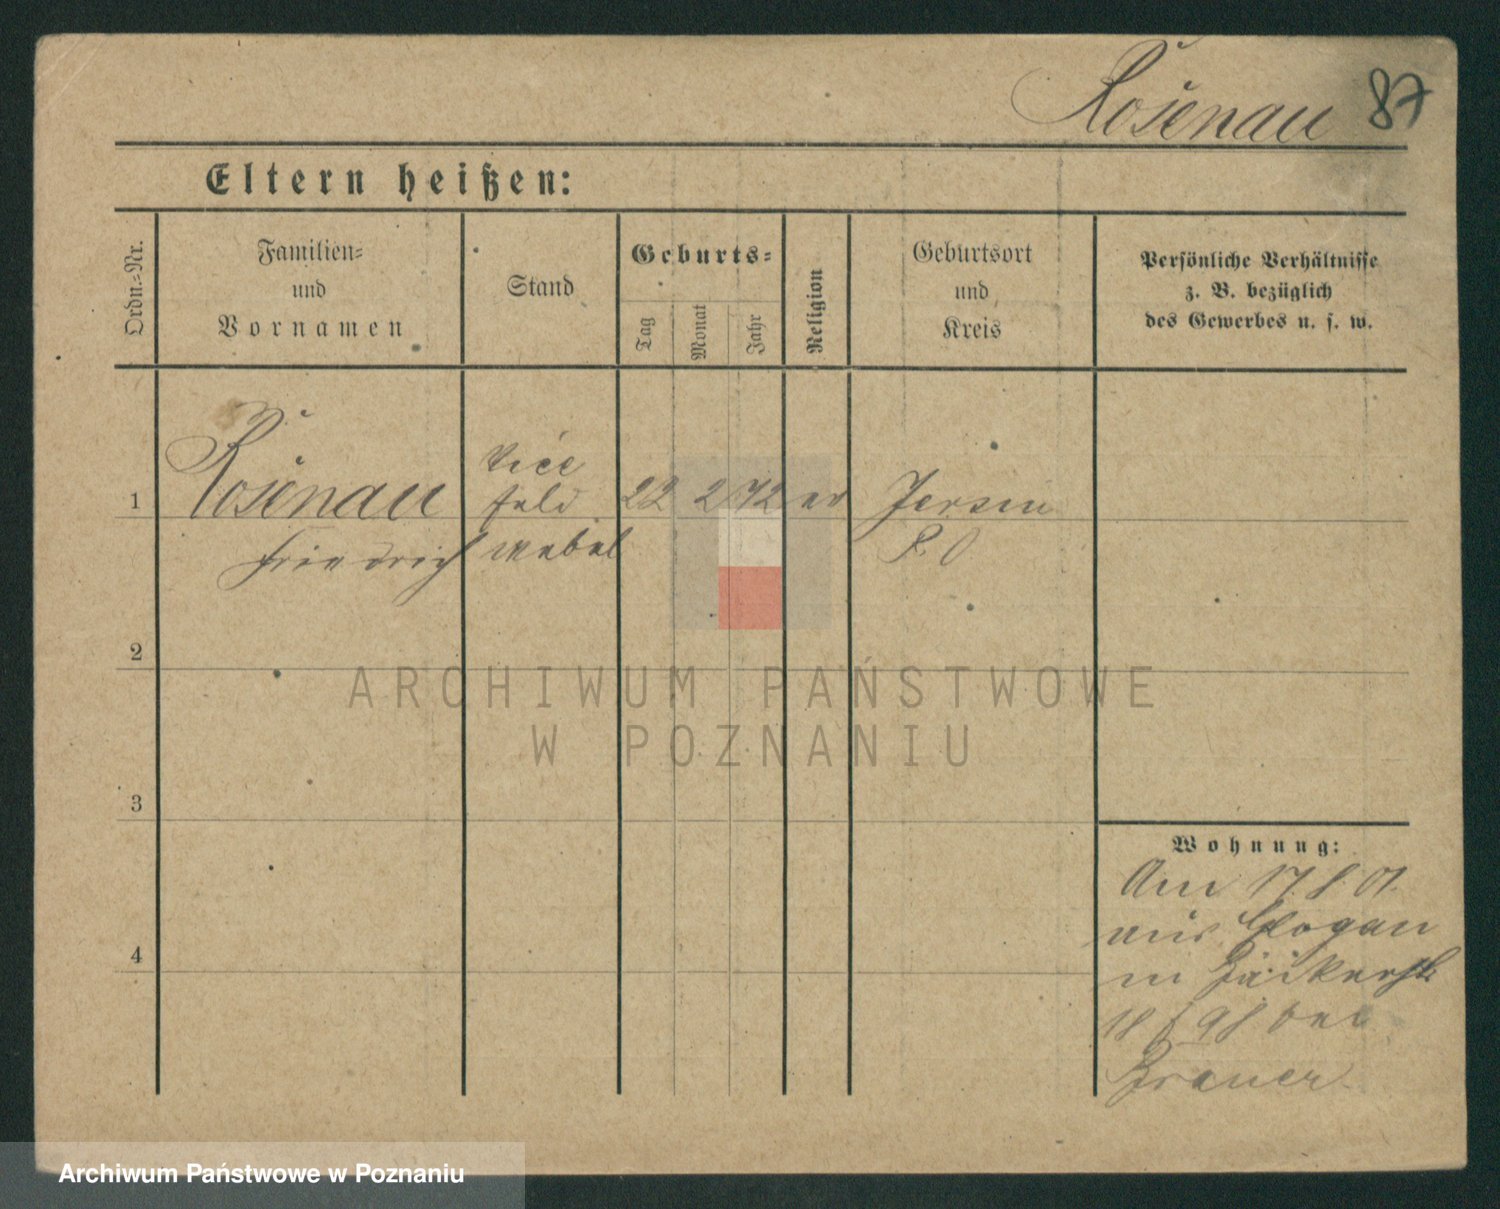 Rosenau 87
Eltern heißen:
Ordn.-Nr.
Familien-
und
Vornamen
Stand
Geburts-
Tag
Monat
Jahr
Religion
Geburtsort
und
Kreis
Persönliche Verhältnisse
z. B. bezüglich
des Gewerbes u. s. w.
1 Rosenau Vice 22 2 72 ev Jersin
Friedrich feld
webel
2
3
4
Wohnung:
Am 17.8.01.
aus Glogau
in Bäckerstr
18 bei
Brauer
ARCHIWUM PAŃSTWOWE
W POZNANIU
Archiwum Państwowe w Poznaniu